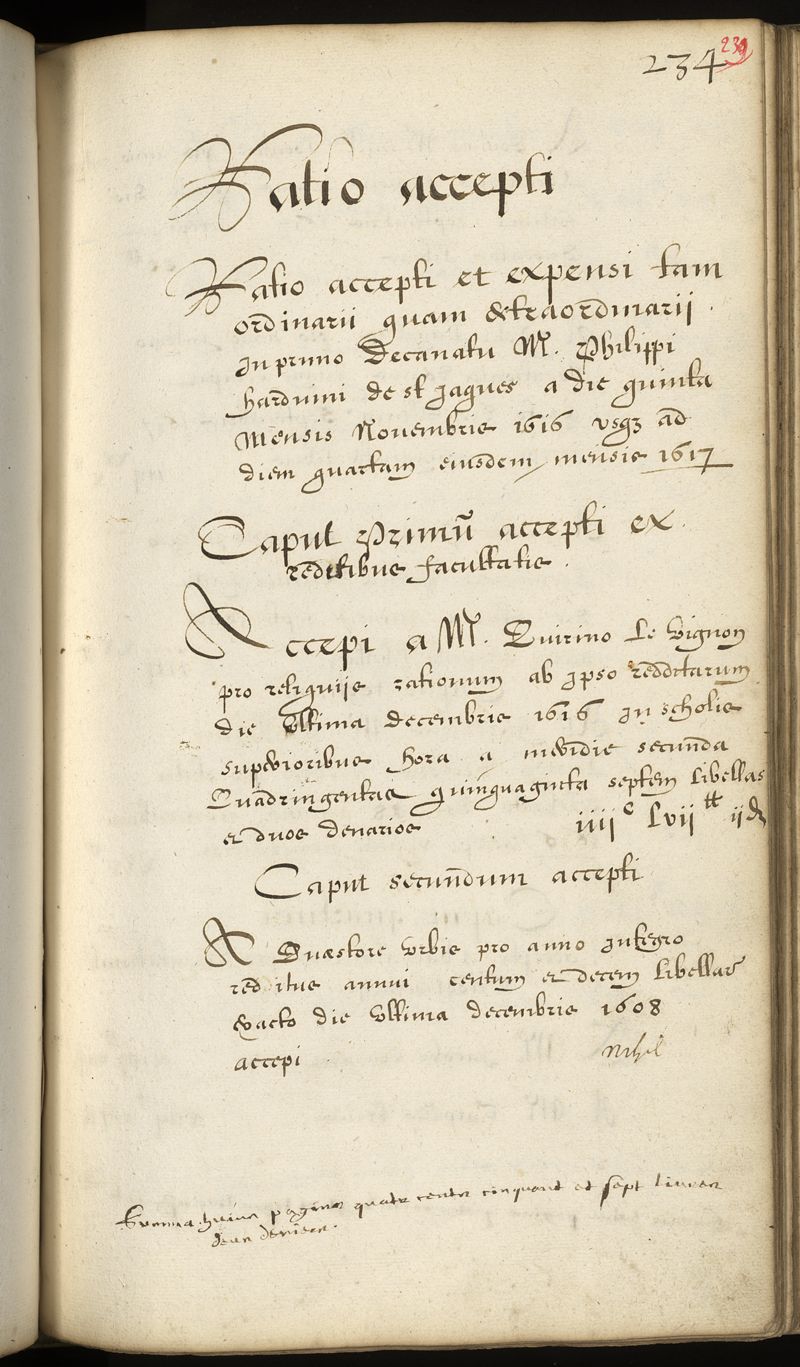 234 239
Ratio accepti
Ratio accepti et expensi tam
ordinarii quam extraordinarii .
In primo Decanatu M. Philippi
harduini de st Jaques a die quinta
Mensis Novembris 1616 vsqz ad
diem quartam eiusdem mensis 1617
Caput Primū accepti ex
redditibus facultatis .
Accepi a M. Quirino Le Vignon
pro reliquijs rationum ab Ipso redditarum
die vltima decembris 1616 In scholis
superioribus hora a meridie secunda
Quadringentas quinquaginta septem libellas
et duos denarios iiiiᶜ Lviitt ijd
Caput secundum accepti
A Quæstore vrbis pro anno Integro
reditus annui centum et decem libellar
exacto die vltima decembris 1608
accepi nihil
Summa huius paginæ quatre cents cinquant et sept liures
deux deniers .